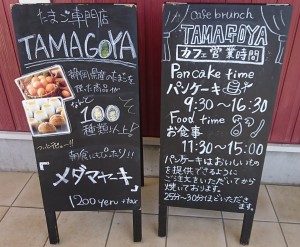 たまご専門店
TAMAGOYA
静岡県産のたまごを
使った商品が
なんと
100
種類以上!
朝食にもぴったり!!
メダマヤーキ
1200yen+tax
cafe brunch
TAMAGOYA
カフェ営業時間
Pancake time
パンケーキ
9:30～16:30
Food time
お食事
11:30～15:00
パンケーキはおいしいもの
を提供できるように
ご注文をいただいてから
焼いております。
25分～30分ほどいただき
ます。